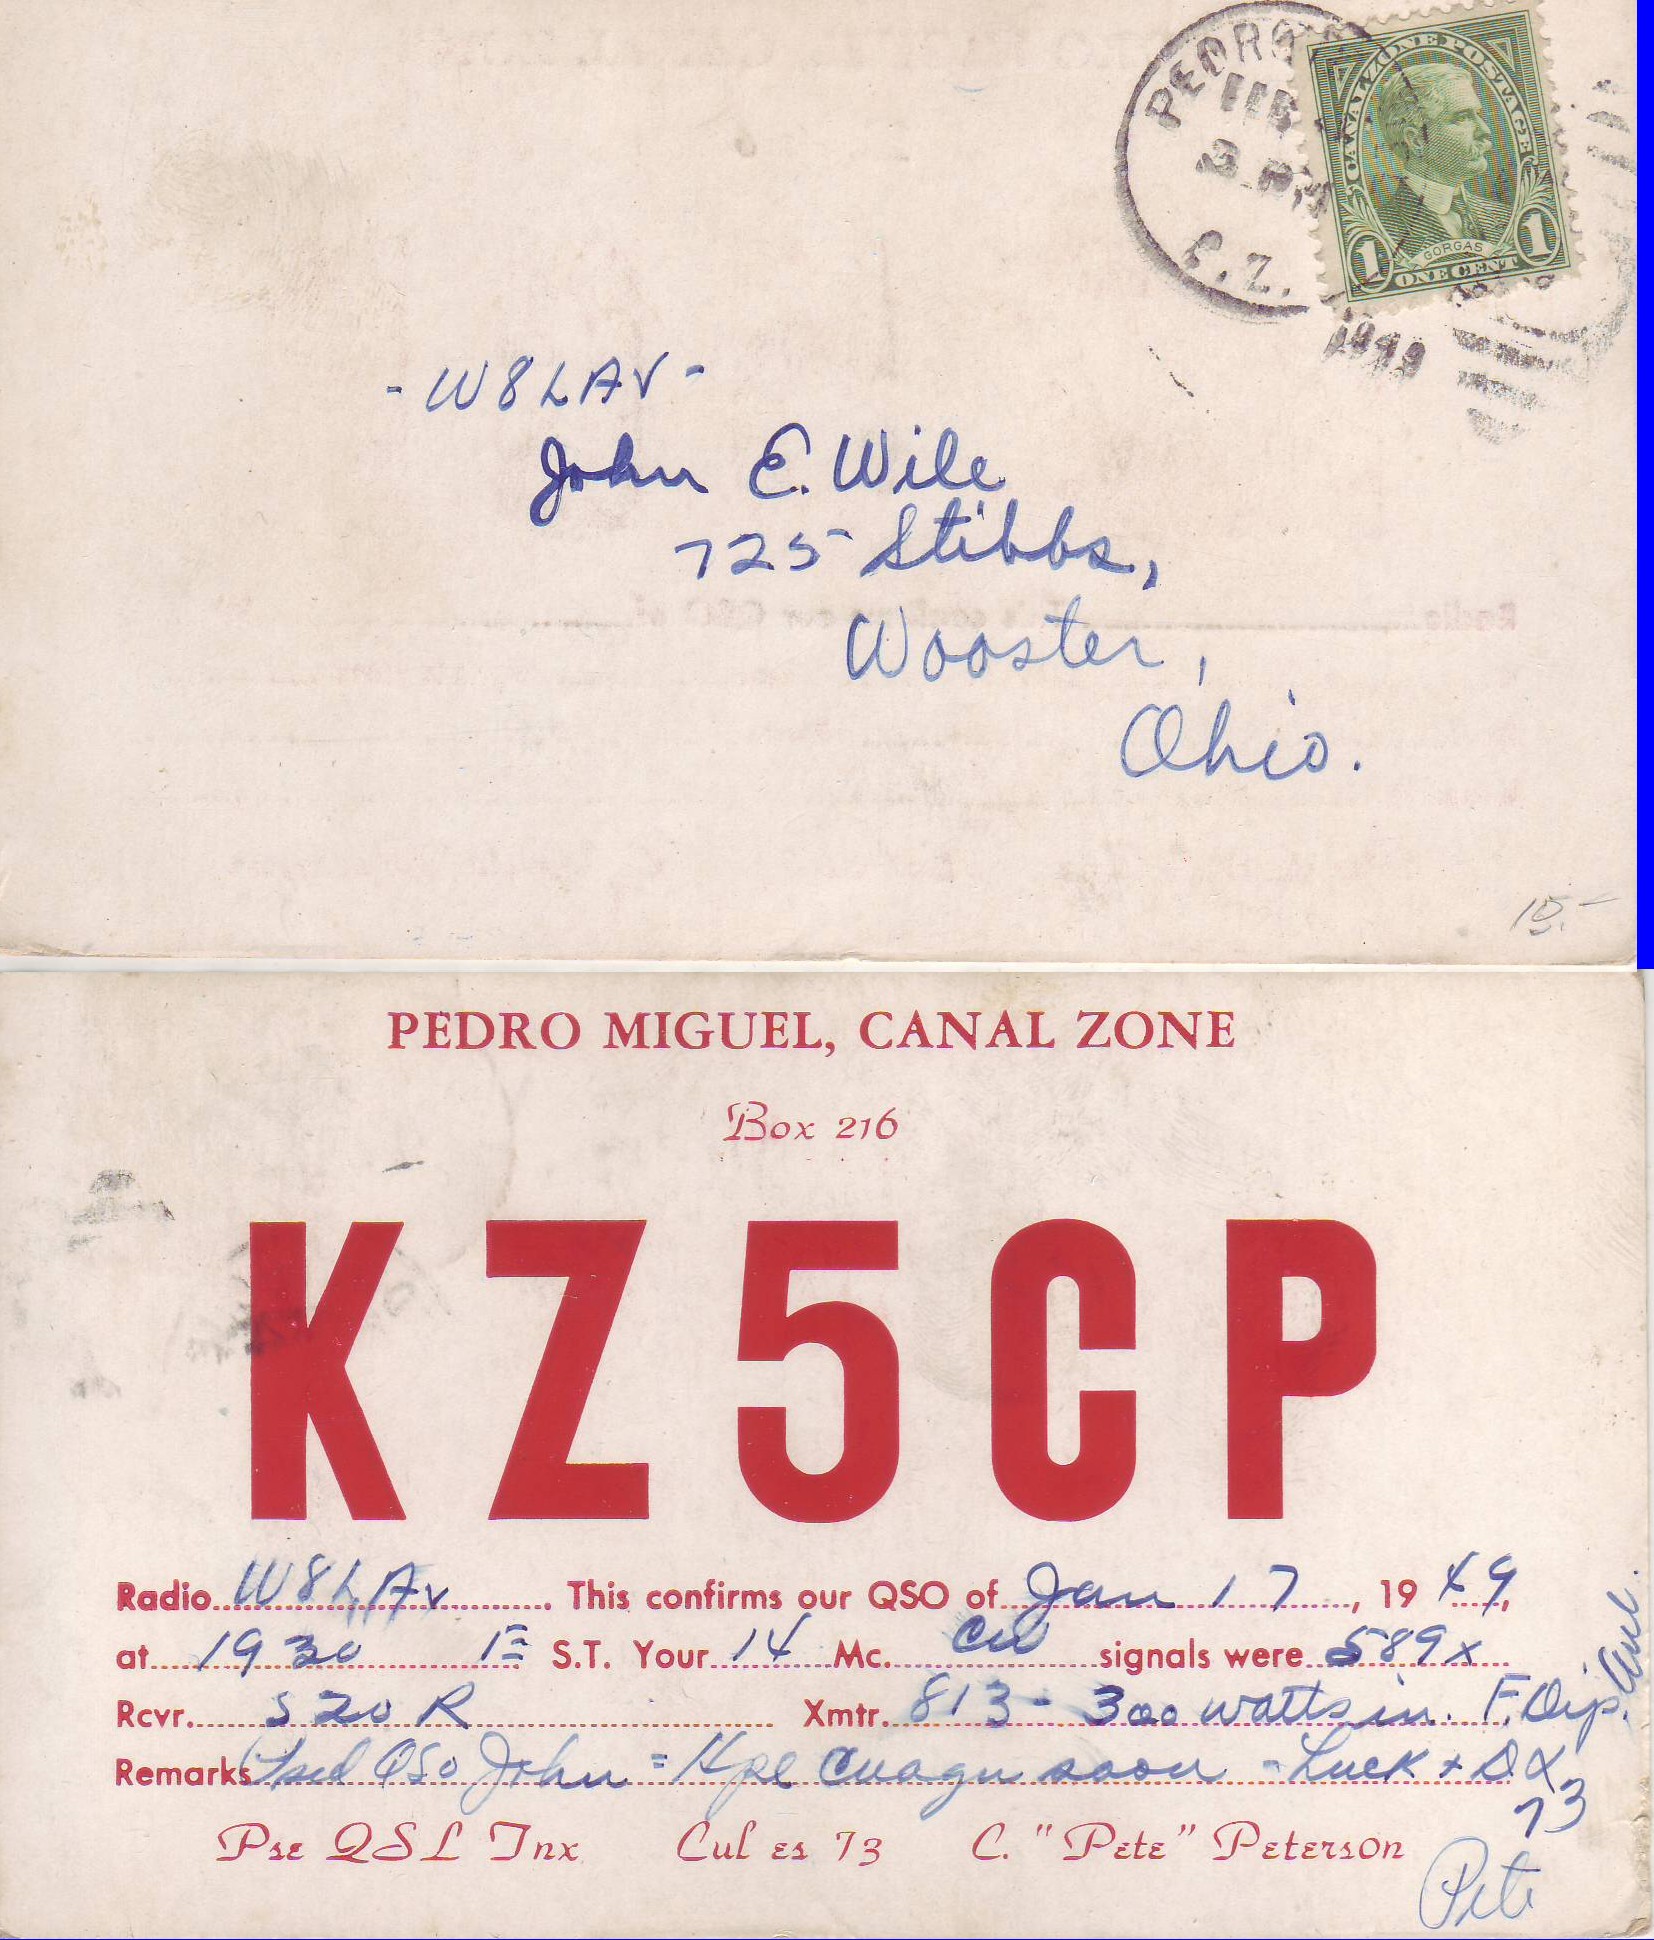 PEDRO
FEB
3 PM
C.Z.
1949
CANAL ZONE POSTAGE
GORGAS
1 ONE CENT 1
- W8LAV -
John E. Wile
725 Stibbs,
Wooster,
Ohio.
15.-
PEDRO MIGUEL, CANAL ZONE
Box 216
KZ5CP
Radio W8LAV. This confirms our QSO of Jan 17, 1949,
at 1930 E S.T. Your 14 Mc. CW signals were 589x
Rcvr. S20R Xmtr. 813 - 300 watts in. F. Dip.
Remarks QSO John = Hpe cuagn soon - Luck + DX
73
Pse QSL Tnx Cul es 73 C. "Pete" Peterson
Pete